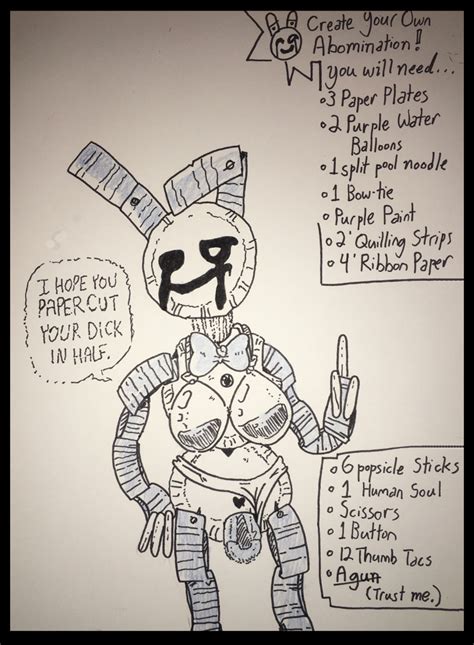 Create Your Own
Abomination!
you will need...
• 3 Paper Plates
• 2 Purple Water
Balloons
• 1 split pool noodle
• 1 Bow-tie
• Purple Paint
• 2' Quilling Strips
• 4' Ribbon Paper
I HOPE YOU
PAPERCUT
YOUR DICK
IN HALF.
• 6 popsicle Sticks
• 1 Human Soul
• Scissors
• 1 Button
• 12 Thumb Tacs
• A gun
(Trust me.)